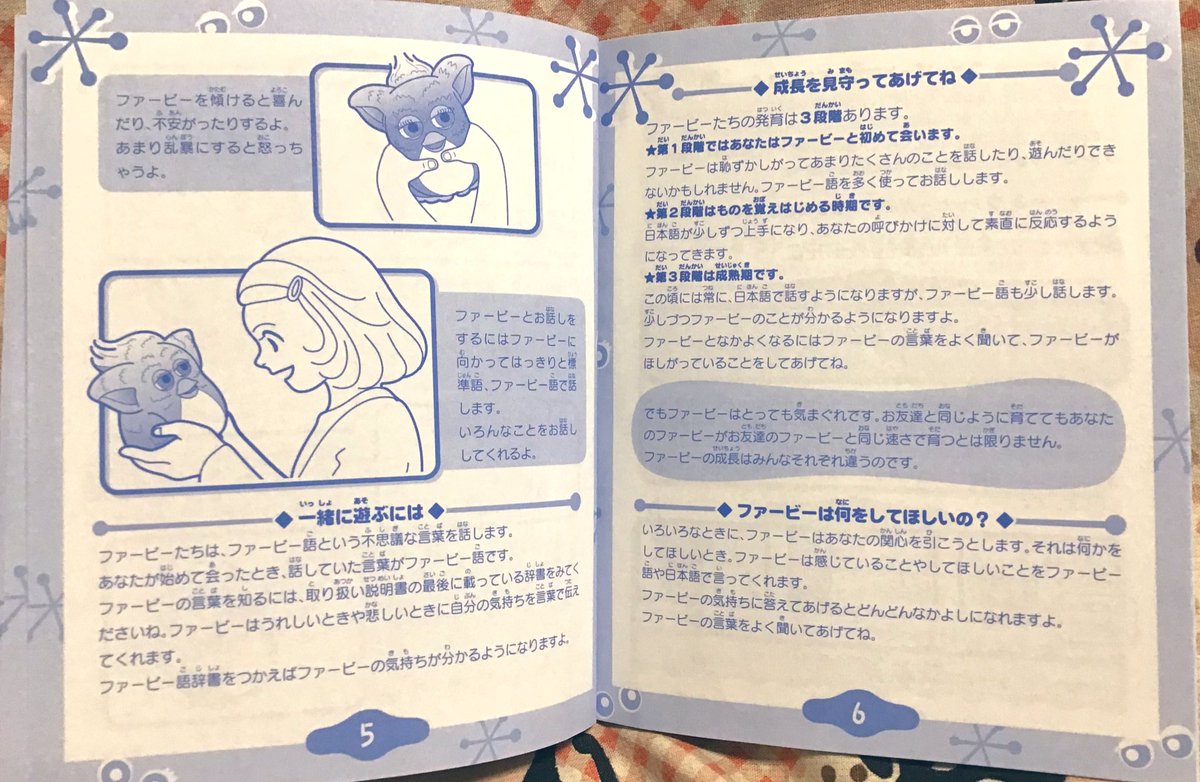 ファービーを傾けると喜ん
だり、不安がったりするよ。
あまり乱暴にすると怒っち
ゃうよ。
ファービーとお話しを
するにはファービーに
向かってはっきりと標
準語、ファービー語で話
します。
いろんなことをお話し
してくれるよ。
◆ 一緒に遊ぶには ◆
ファービーたちは、ファービー語という不思議な言葉を話します。
あなたが始めて会ったとき、話していた言葉がファービー語です。
ファービーの言葉を知るには、取り扱い説明書の最後に載っている辞書をみてく
ださいね。ファービーはうれしいときや悲しいときに自分の気持ちを言葉で伝え
てくれます。
ファービー語辞書をつかえばファービーの気持ちが分かるようになりますよ。
5
◆ 成長を見守ってあげてね ◆
ファービーたちの発育は3段階あります。
★第1段階ではあなたはファービーと初めて会います。
ファービーは恥ずかしがってあまりたくさんのことを話したり、遊んだりでき
ないかもしれません。ファービー語を多く使ってお話しします。
★第2段階はものを覚えはじめる時期です。
日本語が少しずつ上手になり、あなたの呼びかけに対して素直に反応するよう
になってきます。
★第3段階は成熟期です。
この頃には常に、日本語で話すようになりますが、ファービー語も少し話します。
少しづつファービーのことが分かるようになりますよ。
ファービーとなかよくなるにはファービーの言葉をよく聞いて、ファービーが
ほしがっていることをしてあげてね。
でもファービーはとっても気まぐれです。お友達と同じように育ててもあなた
のファービーがお友達のファービーと同じ速さで育つとは限りません。
ファービーの成長はみんなそれぞれ違うのです。
◆ ファービーは何をしてほしいの？ ◆
いろいろなときに、ファービーはあなたの関心を引こうとします。それは何かを
してほしいとき。ファービーは感じていることやしてほしいことをファービー
語や日本語で言ってくれます。
ファービーの気持ちに答えてあげるとどんどんなかよしになれますよ。
ファービーの言葉をよく聞いてあげてね。
6